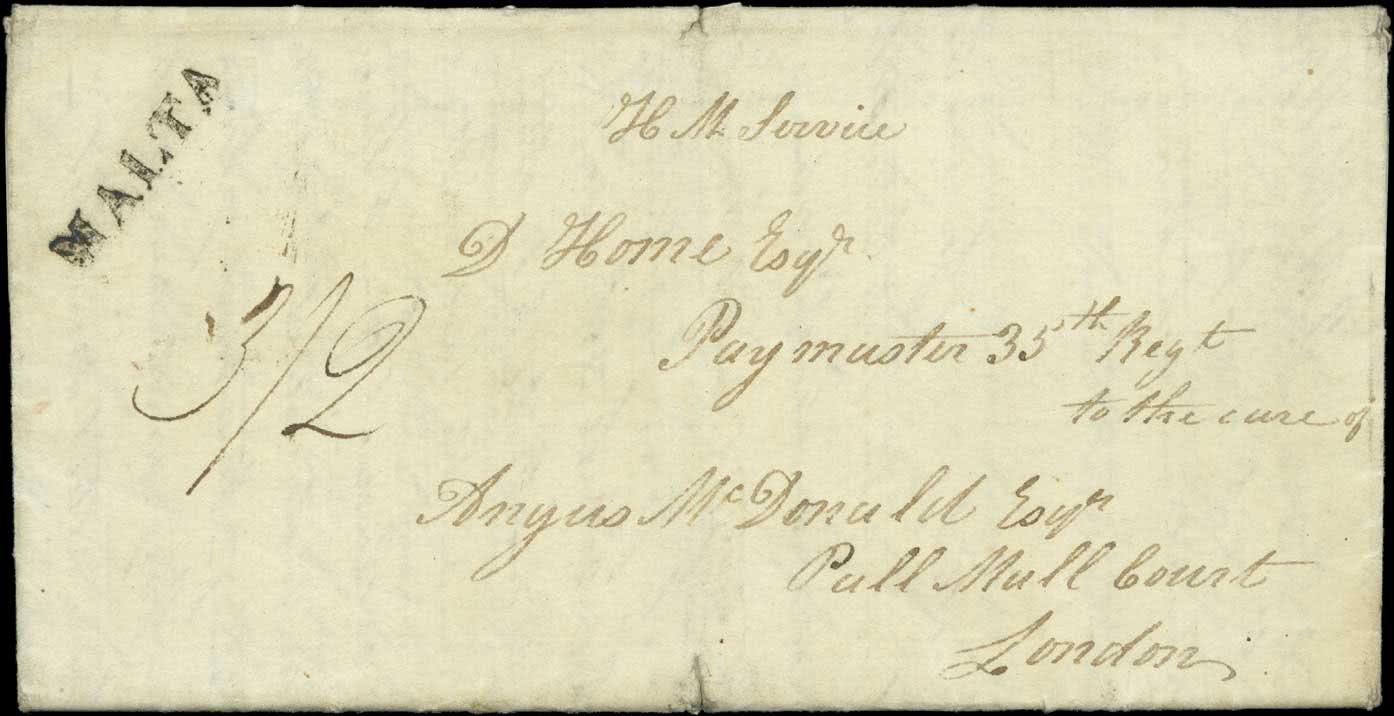 MALTA
H M Service
D Home Esqr
Paymaster 35th Regt
to the care of
3/2
Angus McDonald Esqr
Pall Mall Court
London